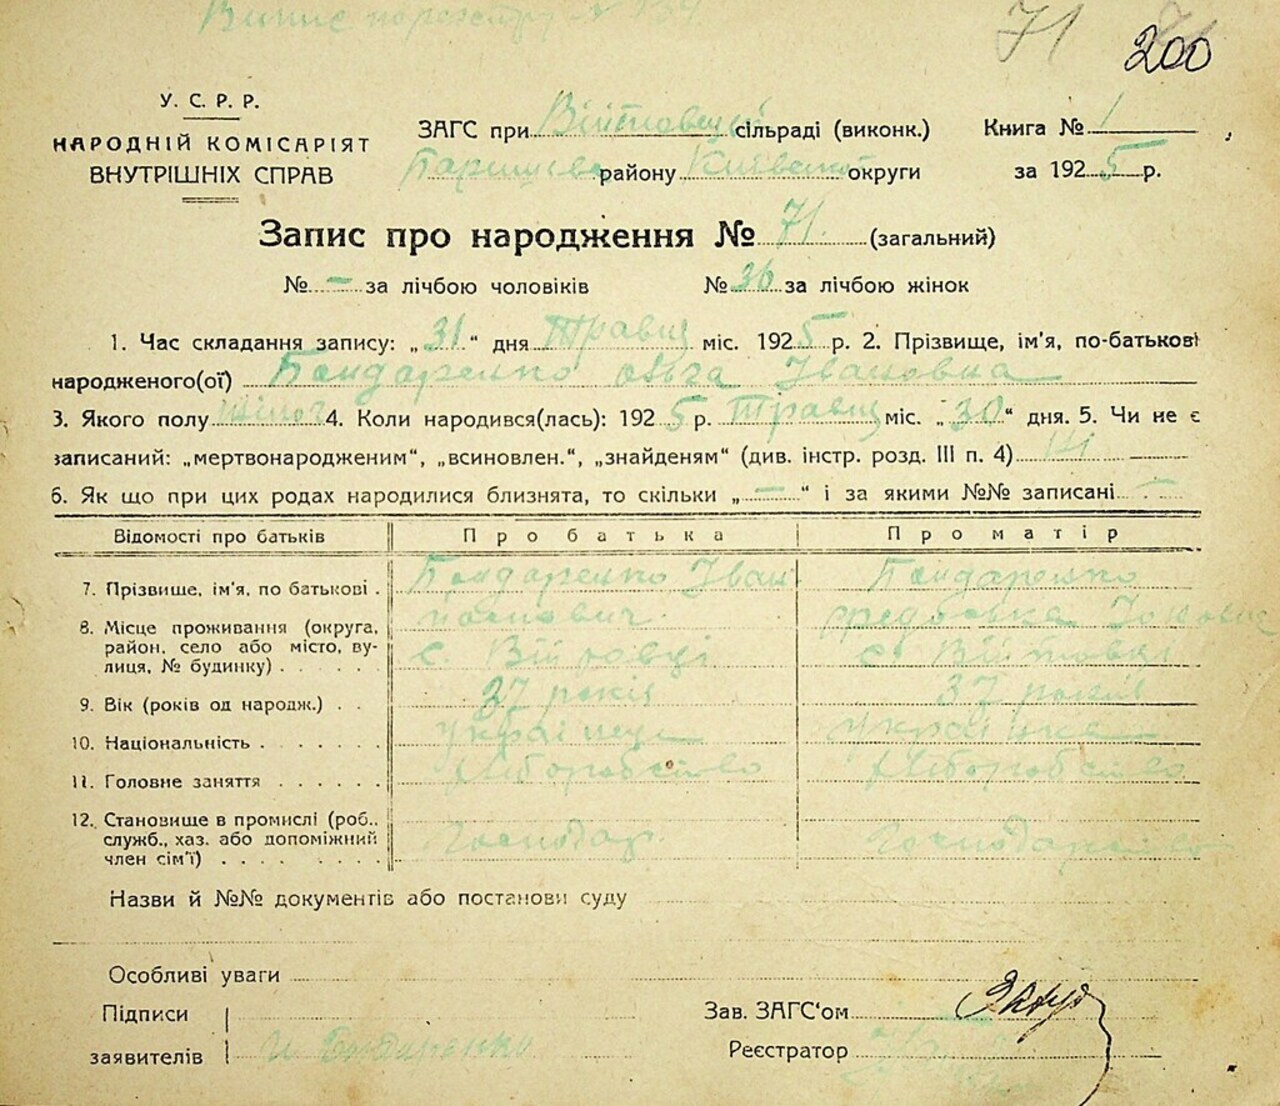 71
200
У. С. Р. Р.
НАРОДНІЙ КОМІСАРІЯТ
ВНУТРІШНІХ СПРАВ
ЗАГС при Війтовецькій сільраді (виконк.) Книга № 1
району Київської округи за 1925 р.
Запис про народження № 71. (загальний)
№ – за лічбою чоловіків № 36 за лічбою жінок
1. Час складання запису: „31“ дня Травця міс. 1925 р. 2. Прізвище, ім'я, по-батькові
народженого(ої) Бондаренко Ольга Івановна
3. Якого полу жіноч 4. Коли народився(лась): 1925 р. Травця міс. „30“ дня. 5. Чи не є
записаний: „мертвонародженим“, „всиновлен.“, „знайденям“ (див. інстр. розд. III п. 4)
6. Як що при цих родах народилися близнята, то скільки „—“ і за якими №№ записані —
Відомості про батьків Про батька Про матір
7. Прізвище, ім'я, по батькові . Бондаренко Іван Бондаренко
8. Місце проживання (округа, район, село або місто, вулиця, № будинку) . . . . . с. Війтовці с. Війтовці
9. Вік (років од народж.) . . 37 років 37 років
10. Національність . . . . . . . українець українка
11. Головне заняття . . . . . . Хліборобство Хліборобство
12. Становище в промислі (роб., служб., хаз. або допоміжний член сім'ї) . . . . . . . . Господар Господарство
Назви й №№ документів або постанови суду
Особливі уваги
Підписи
Зав. ЗАГС'ом
заявителів И Бондаренко Реєстратор